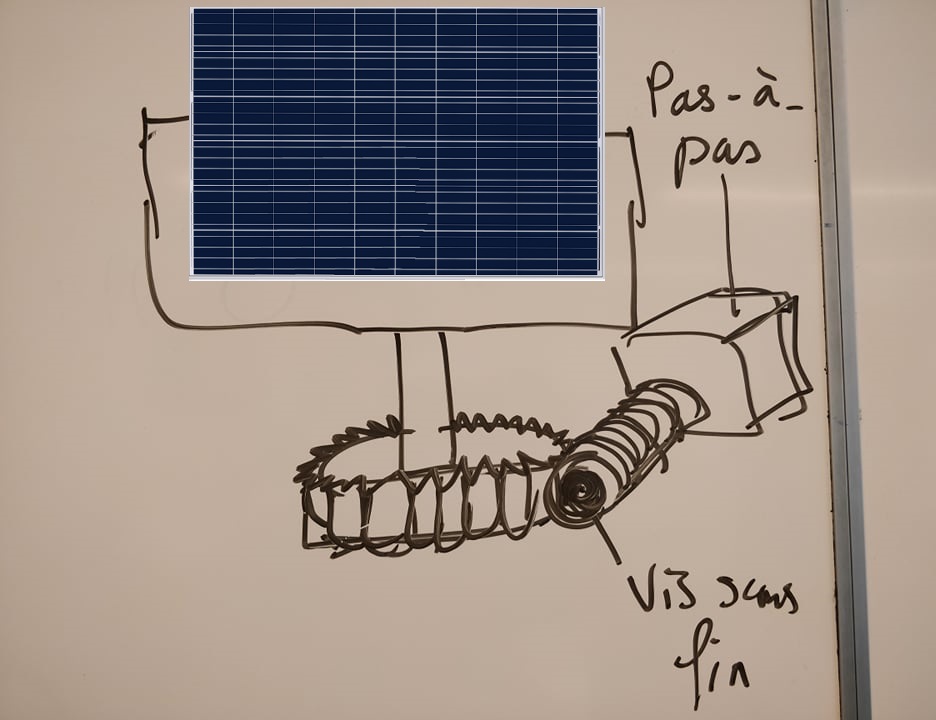 Pas-à-
pas
Vis sans
fin